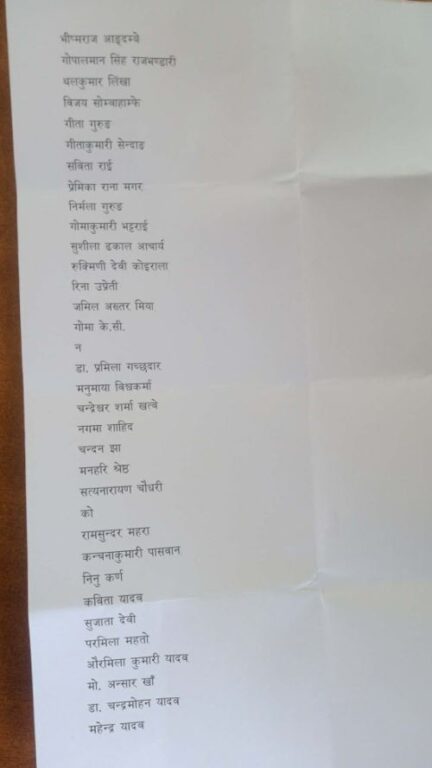 भीष्मराज आङ्दम्बे
गोपालमान सिंह राजभण्डारी
थलकुमार लिखा
विजय सोम्बाहाम्फे
गीता गुरुङ
गीताकुमारी सेन्दाङ
सबिता राई
प्रेमिका राना मगर
निर्मला गुरुङ
गोमाकुमारी भट्टराई
सुशीला ढकाल आचार्य
रुक्मिणी देवी कोइराला
रिना उप्रेती
जमिल अख्तर मिया
गोमा के.सी.
न
डा. प्रमिला गच्छदार
मनुमाया विश्वकर्मा
चन्द्रेश्वर शर्मा खत्वे
नगमा शाहिद
चन्दन झा
मनहरि श्रेष्ठ
सत्यनारायण चौधरी
को
रामसुन्दर महरा
कन्चनाकुमारी पासवान
निनु कर्ण
कविता यादव
सुजाता देवी
परमिला महतो
औरमिला कुमारी यादव
मो. अन्सार खाँ
डा. चन्द्रमोहन यादव
महेन्द्र यादव